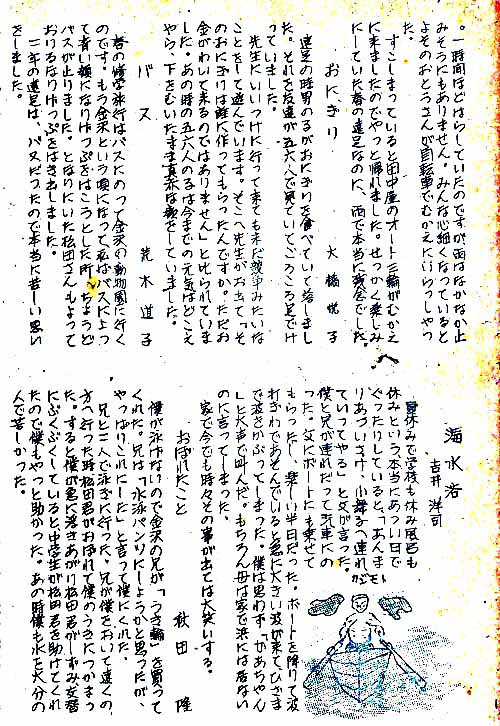 。一時間ほどはらしていたのですが雨はなかなか止
みそうにもありません。みんな心細くなっていると
よそのおとうさんが自転車でむかえにいらっしゃっ
た。
すこしまっていると田中屋のオート三輪がむかえ
に来ましたのでやっと帰れました。せっかく楽しみ
にしていた春の遠足なのに、雨で本当に残念でした
おにぎり
大橋悦子
遠足の時男の子がおにぎりを食べていて落しまし
た。それを友達が五六人で見ていてごろごろ足でけ
っていました。
先生にいいつけに行って来ても未だ競争みたいな
ことをして遊んでいます。そこへ先生がお出て「そ
のおにぎりは誰に作ってもらったんですか。ただお
金がわいて来るのではありません」と叱られていま
した。あの時の五六人の子は今までの元気はどこえ
やら、下をむいたまま真赤な顔をしていました。
バス
荒木道子
春の修学旅行はバスにのって金沢の動物園に行く
のです。もう金沢という頃になって私はバスによっ
て青い顔になりげっぷをはこうとした所、ちょうど
バスが止りました。となりにいた松田さんもよって
おりるなりげっぷをはき出しました。
二年の遠足は、バスだったので本当に苦しい思い
をしました。
海水浴
吉井洋司
夏休みで学校も休み風呂も
休みという本当にあつい日で
ぐったりしていると、「あんま
りあづいさけ、小舞子へ連れ
ていってやる」と父が言った。
僕と兄が連れだって汽車にの
った。父にボートにも乗せて
もらったし、楽しい半日だった。ボートを降りて波
打ぎわであそんでいると急に大きい波が来てひざま
で波をかぶってしまった。僕は思わず「かあちゃん
」と大声で叫んだ。もちろん母は家で浜には居ない
のに言ってしまった。
家で今でも時々その事が出ては大笑いする。
おぼれたこと
秋田隆
僕が泳げないので金沢の兄が「うき輪」を買って
くれた。兄は「水泳パンツにしようかと思ったが、
やっぱりこれにした」と言って僕にくれた。
兄と二人で泳ぎに行った。兄が僕をおいて遠くの
方へ行った時松田君がおぼれて僕のうきにつかまっ
た。すると僕が急に浮きあがり松田君がしずみ交替
にぶくぶくしていると中学生が松田君を助けてくれ
たので僕もやっと助かった。あの時僕も水を大分の
んで苦しかった。